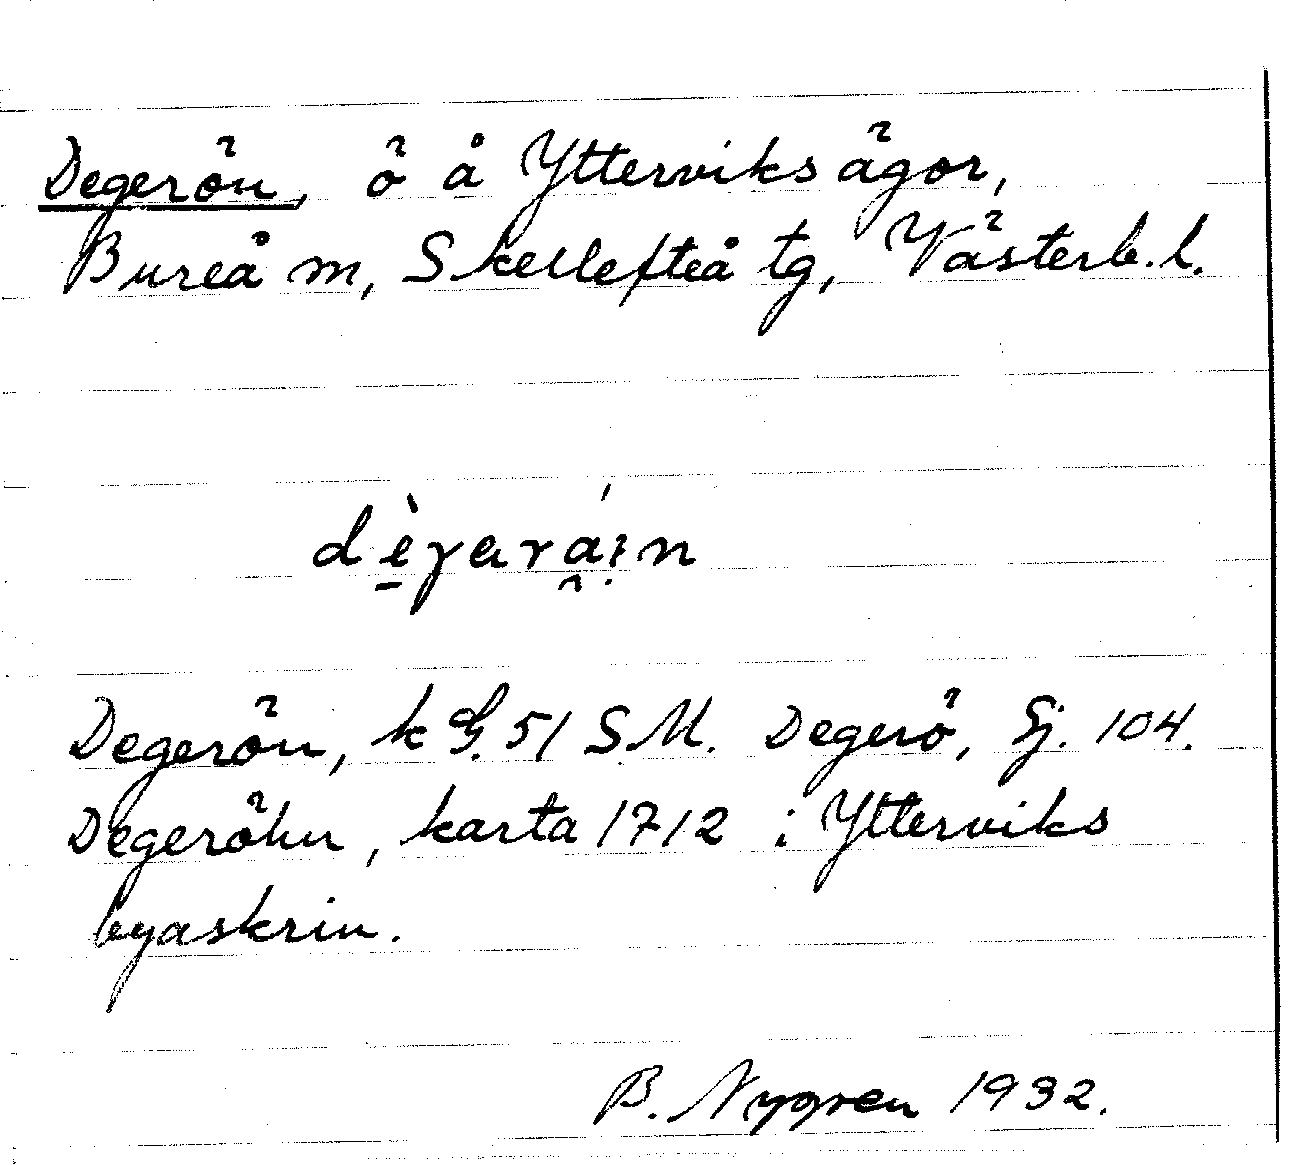 Degerön, ö å Ytterviks ägor,
Bureå m, Skellefteå tg, Västerb. l.
Degerön, k G. 51 S.M. Degerö, Sj. 104.
Degeröhn, karta 1712 i Ytterviks
byaskrin.
B. Nygren 1932.